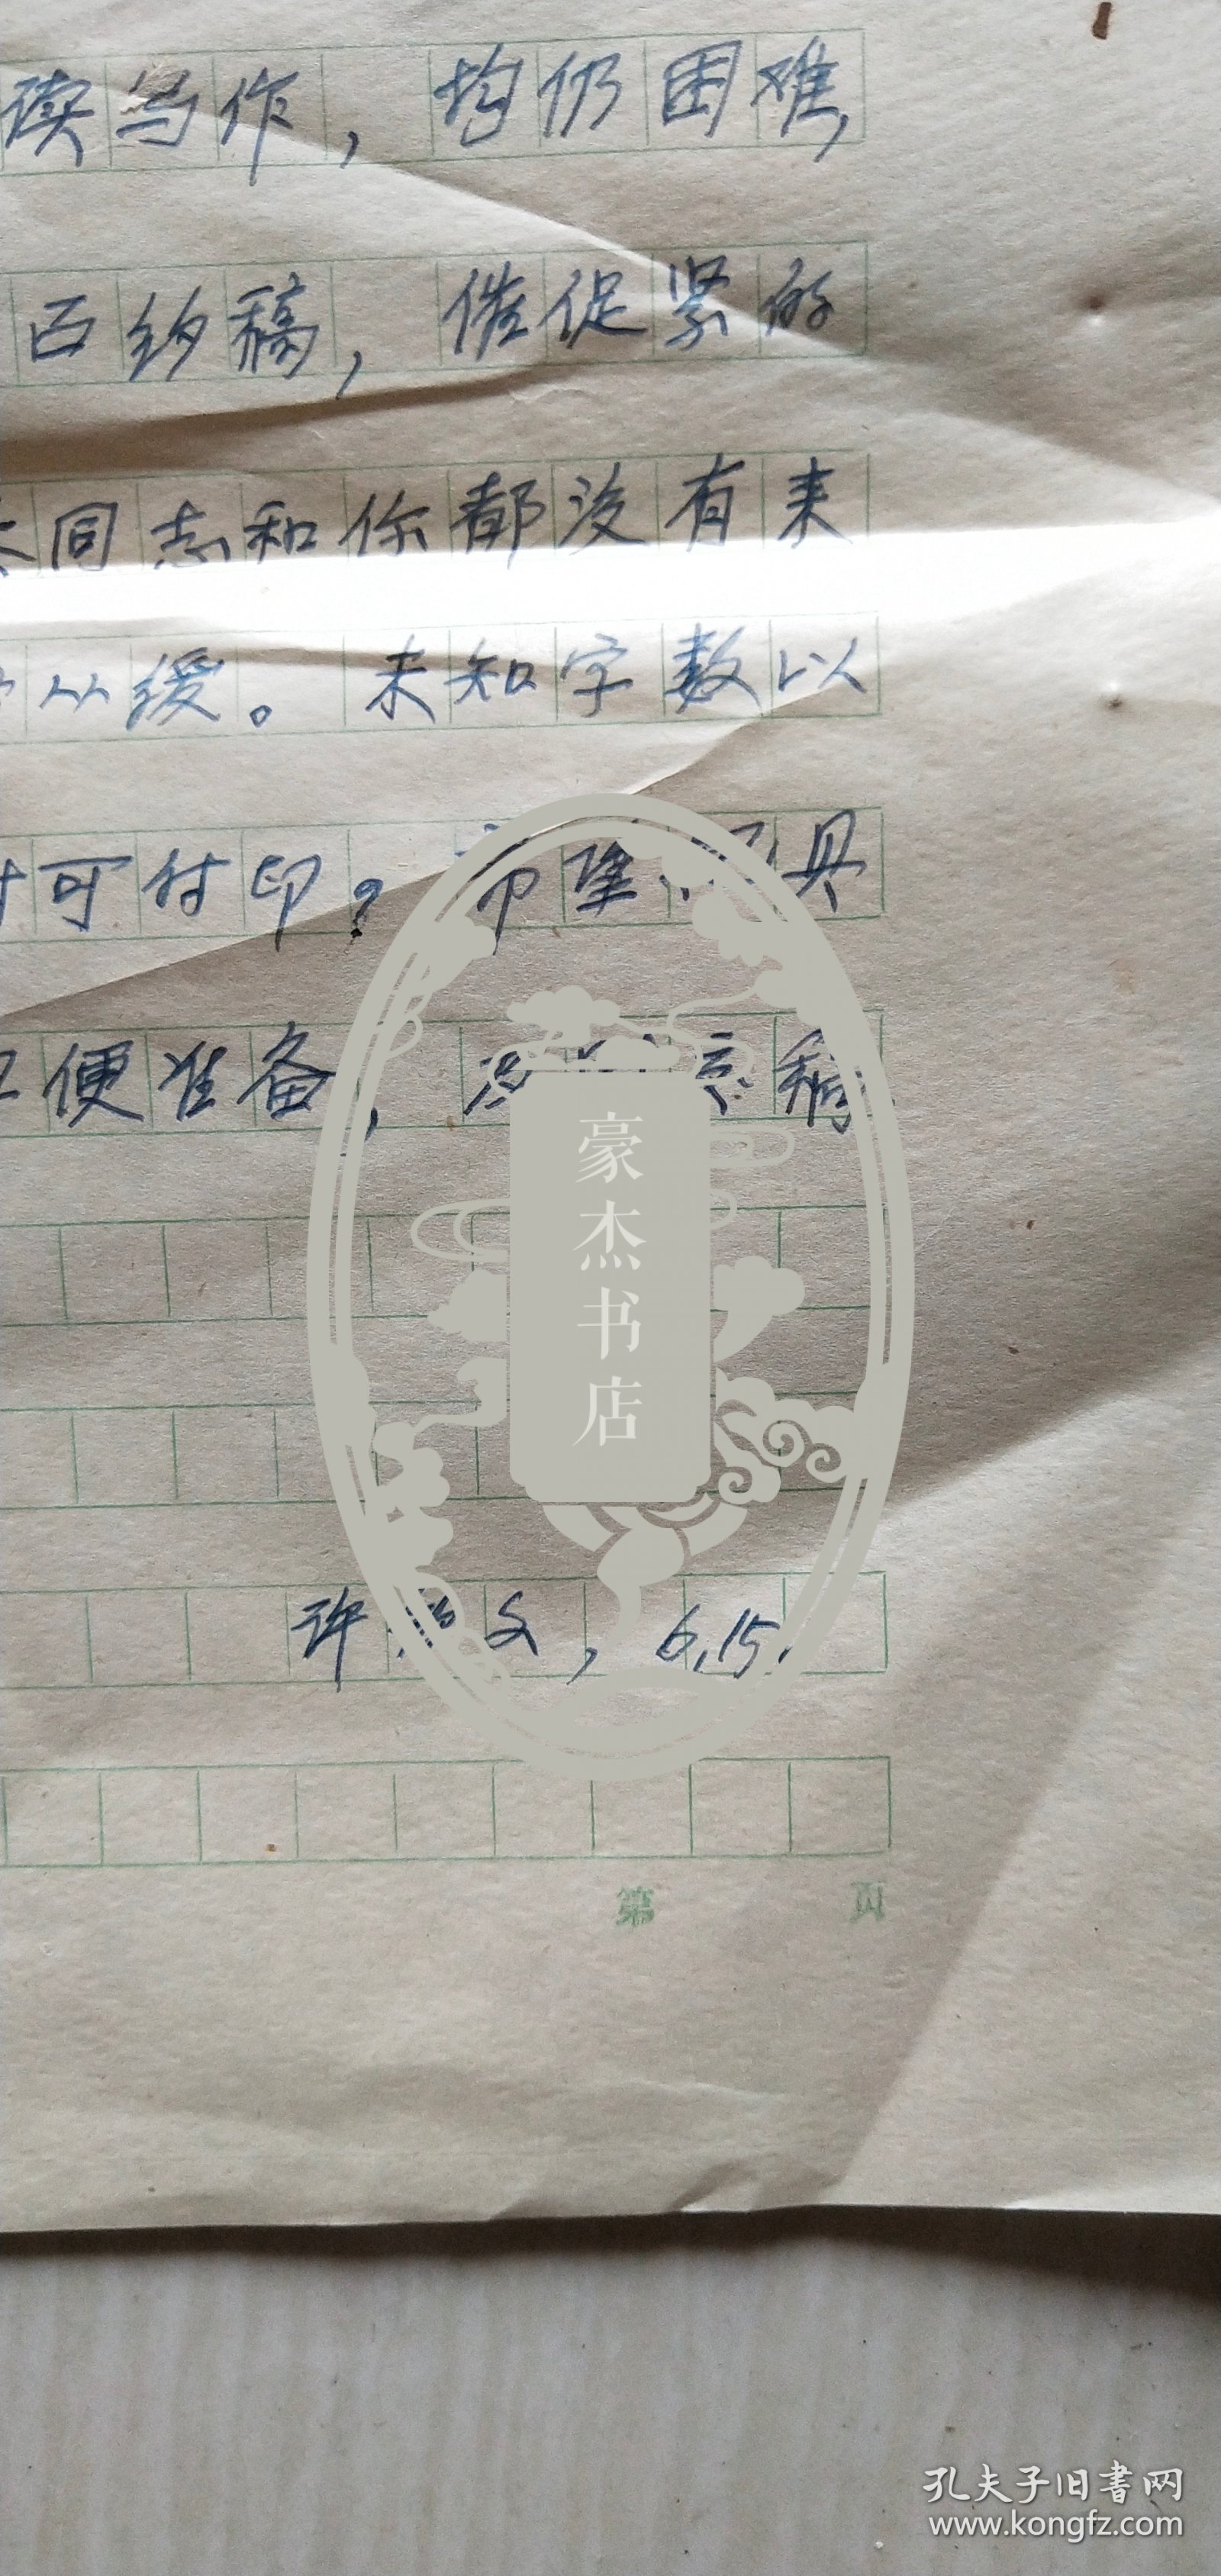 读写作，均仍困难，
百约稿，催促紧的
同志和你都没有来
从缓。未知字数以
时可付印？希望具
便准备，稿
豪杰书店
许文，6,15.
第 页
孔夫子旧書网
www.kongfz.com